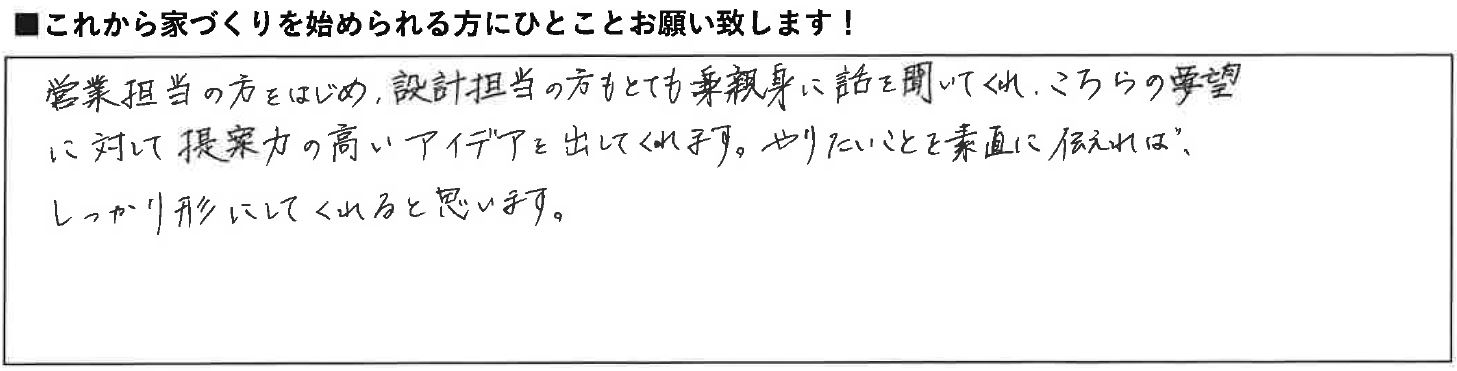 ■これから家づくりを始められる方にひとことお願い致します！
営業担当の方をはじめ、設計担当の方もとても親身に話を聞いてくれ、こちらの要望
に対して提案力の高いアイデアを出してくれます。やりたいことを素直に伝えれば、
しっかり形にしてくれると思います。